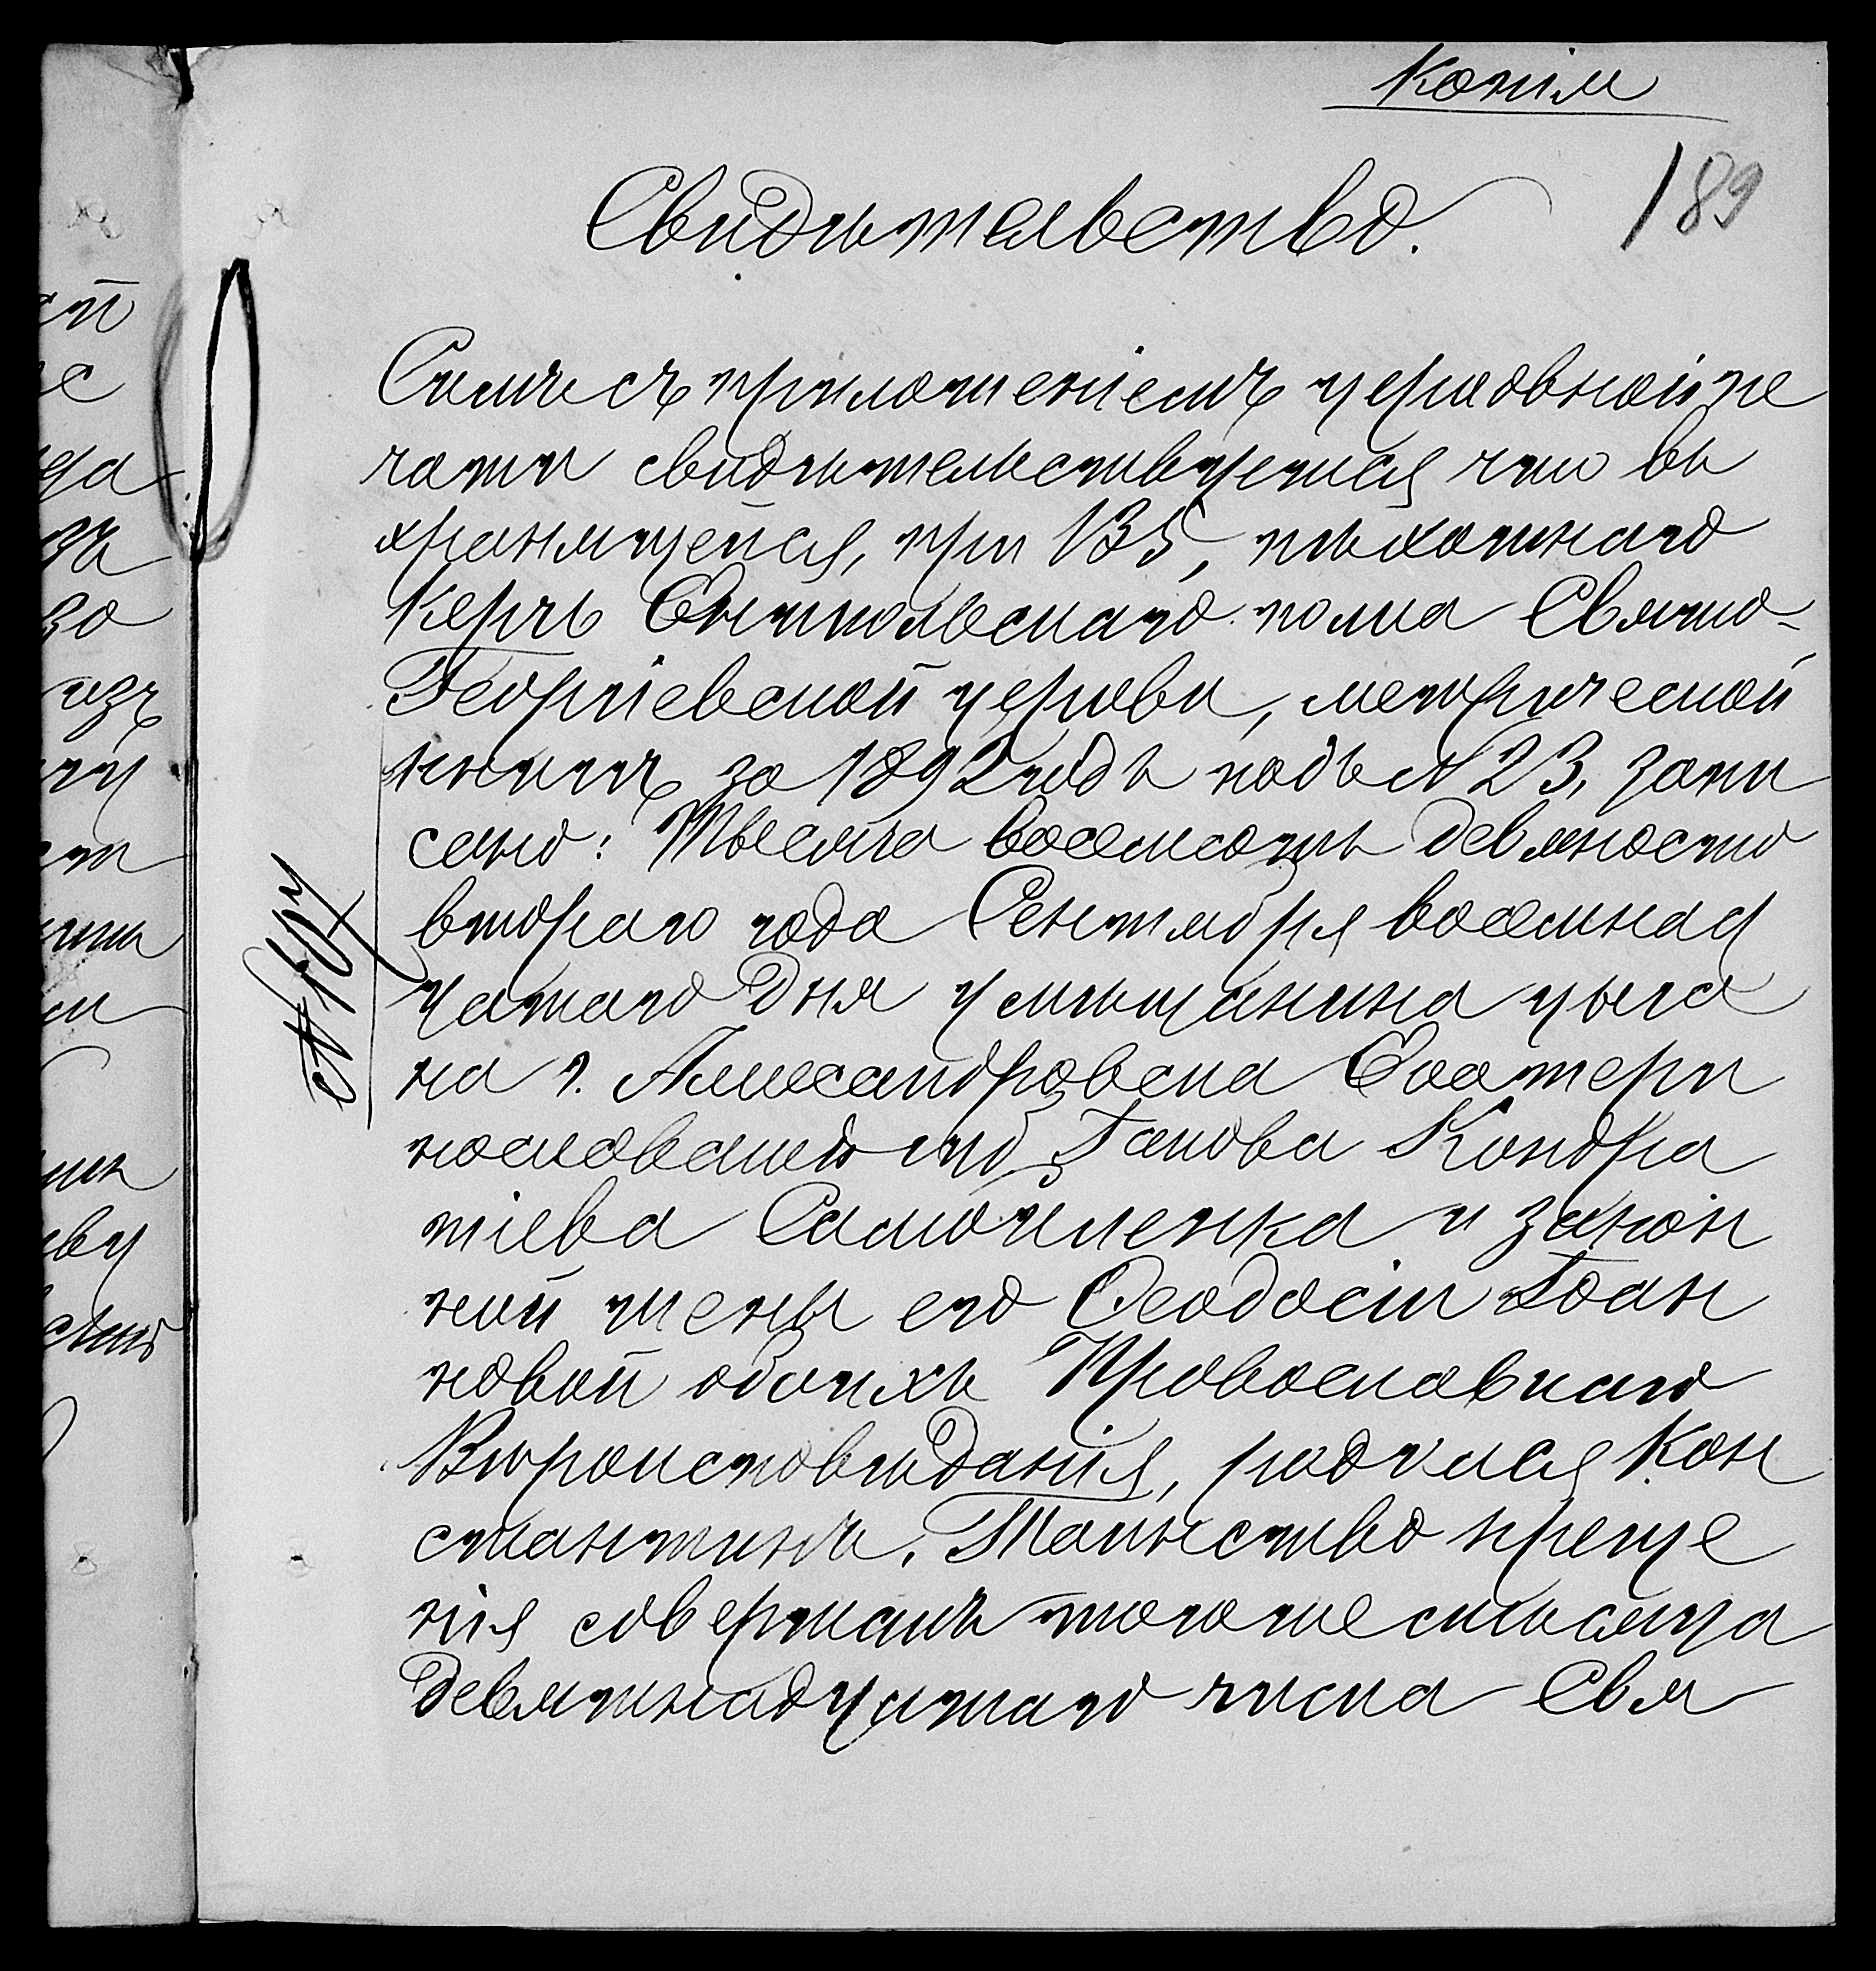 Копія
189
Свидѣтельство.
Симъ съ приложеніемъ церковной пе
чати свидѣтельствуется что въ
хранящейся, при 135, пѣхотнаго
Керчь Еникольскаго полка Свято-
Георгіевской церкви, метрической
книги за 1892 годъ подъ №23, запи
сано: Тысяча восемсотъ девяносто
втораго года Сентября восемнад
цатаго дня у мѣщанина цыга
на г. Александровска Екатери
нославской губ Іакова Кондра
тіева Самойленка и закон
ной жены его Феодосіи Іоан
новой обоихъ Православнаго
Вѣроисповѣданія, родился Кон
стантинъ. Таинство креще
нія совершалъ того же мѣсяца
девятнадцатаго числа Свя
№ 107